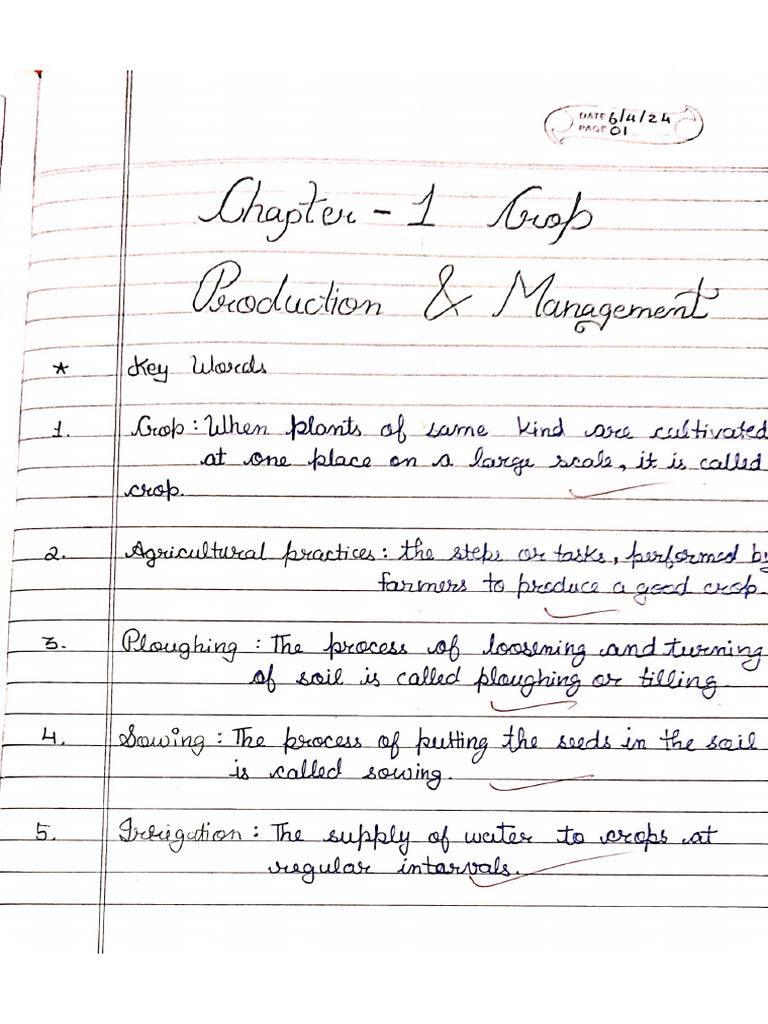 DATE 6/4/24
PAGE 01
Chapter - 1 Crop
Production & Management
* Key Words
1. Crop : When plants of same kind are cultivated
at one place on a large scale, it is called
crop.
2. Agricultural practices : the steps or tasks, performed by
farmers to produce a good crop.
3. Ploughing : The process of loosening and turning
of soil is called ploughing or tilling.
4. Sowing : The process of putting the seeds in the soil
is called sowing.
5. Irrigation : The supply of water to crops at
regular intarvals.